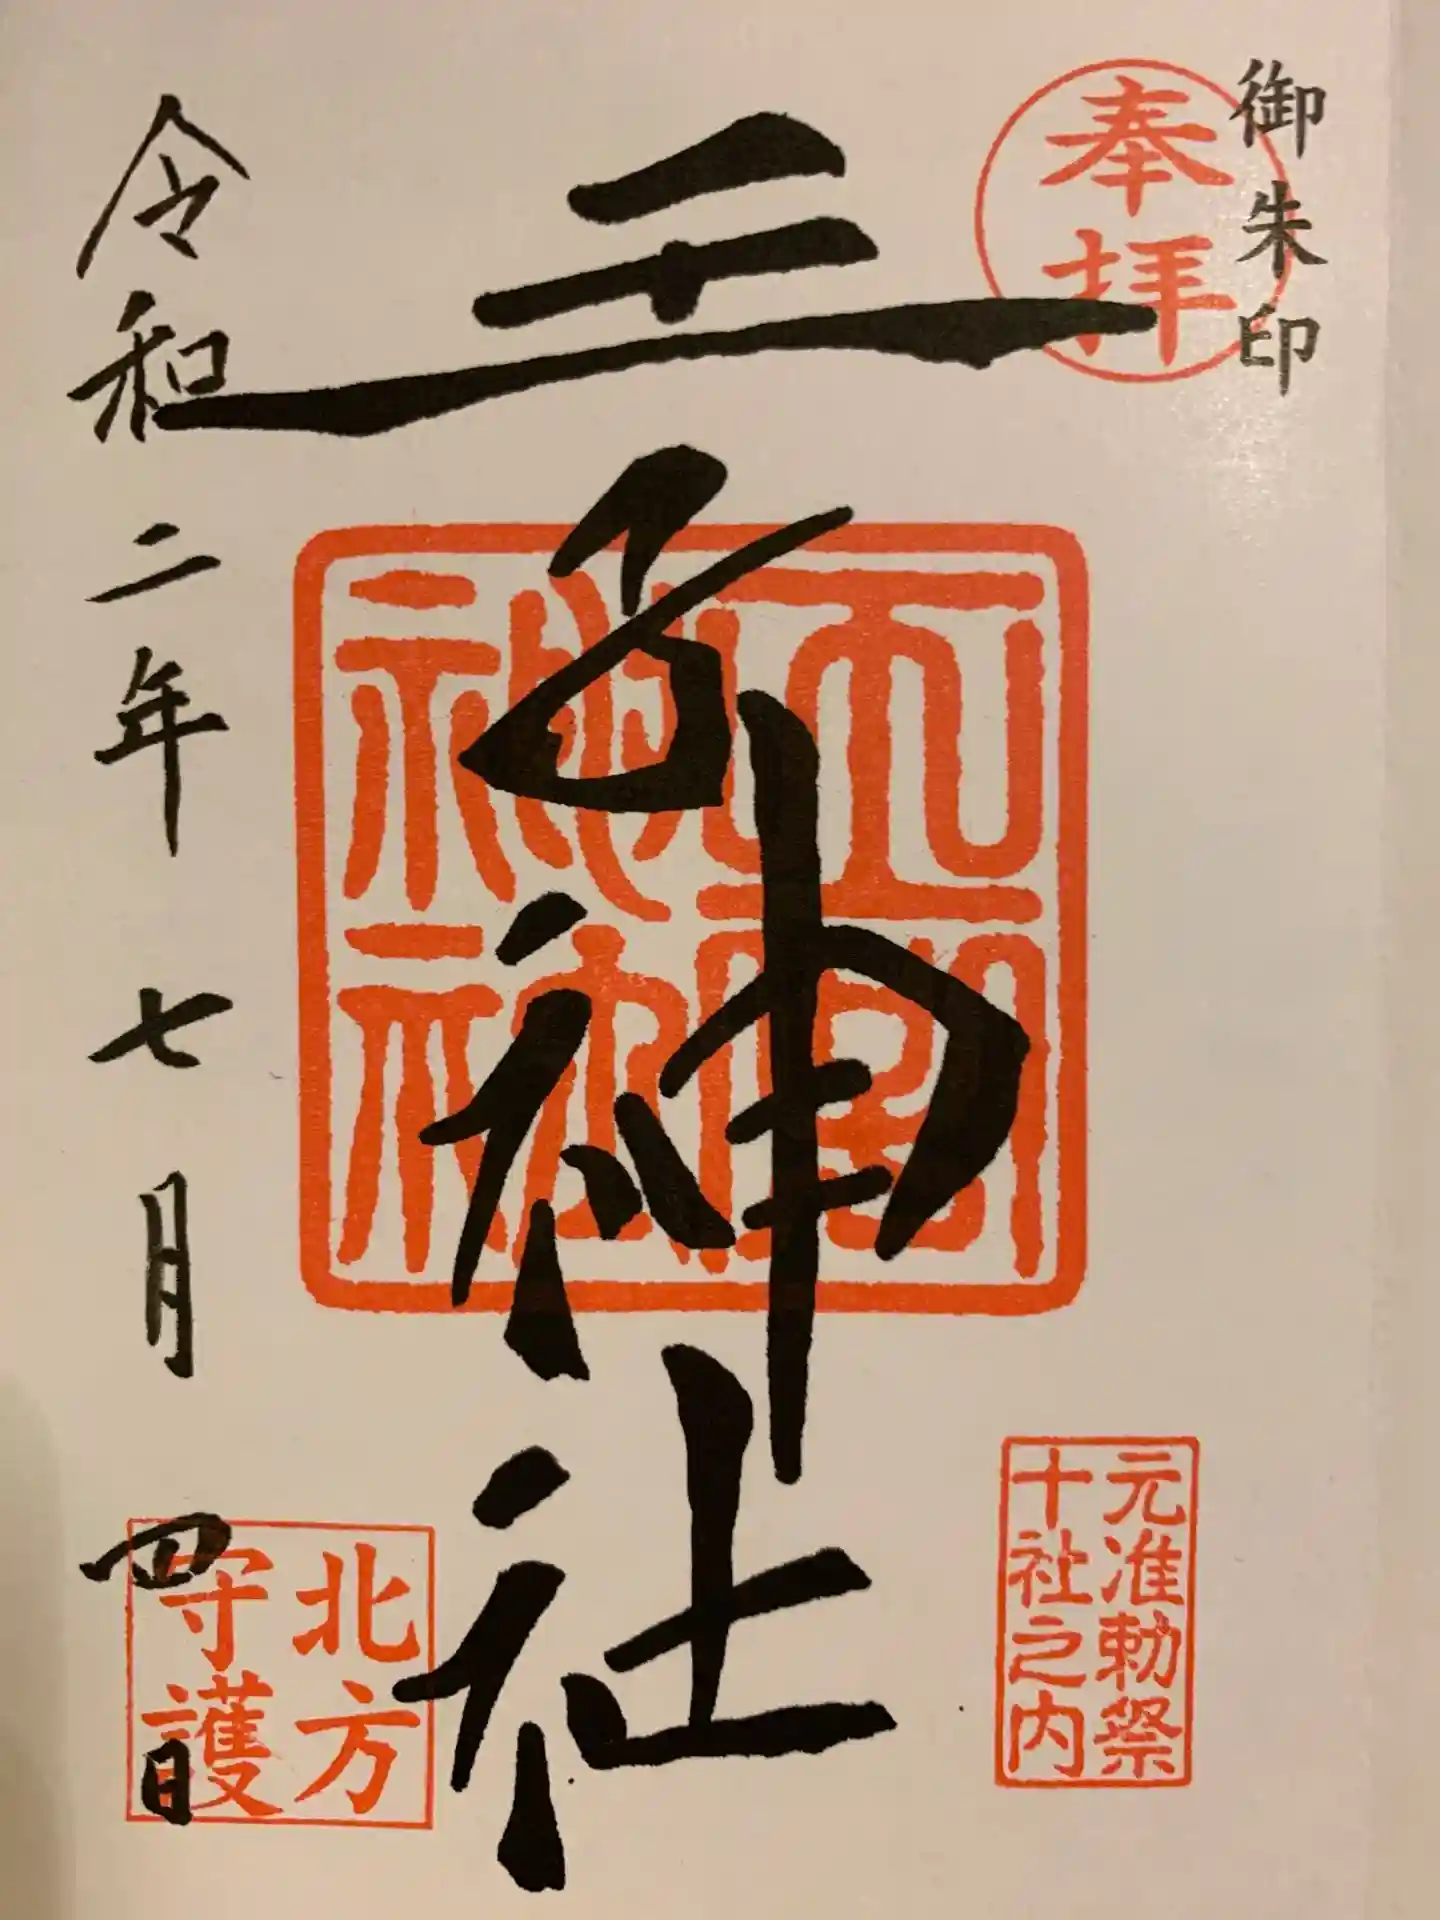 御朱印
奉拝
王子神社
元准勅祭
十社之内
北方
守護
令和二年七月四日